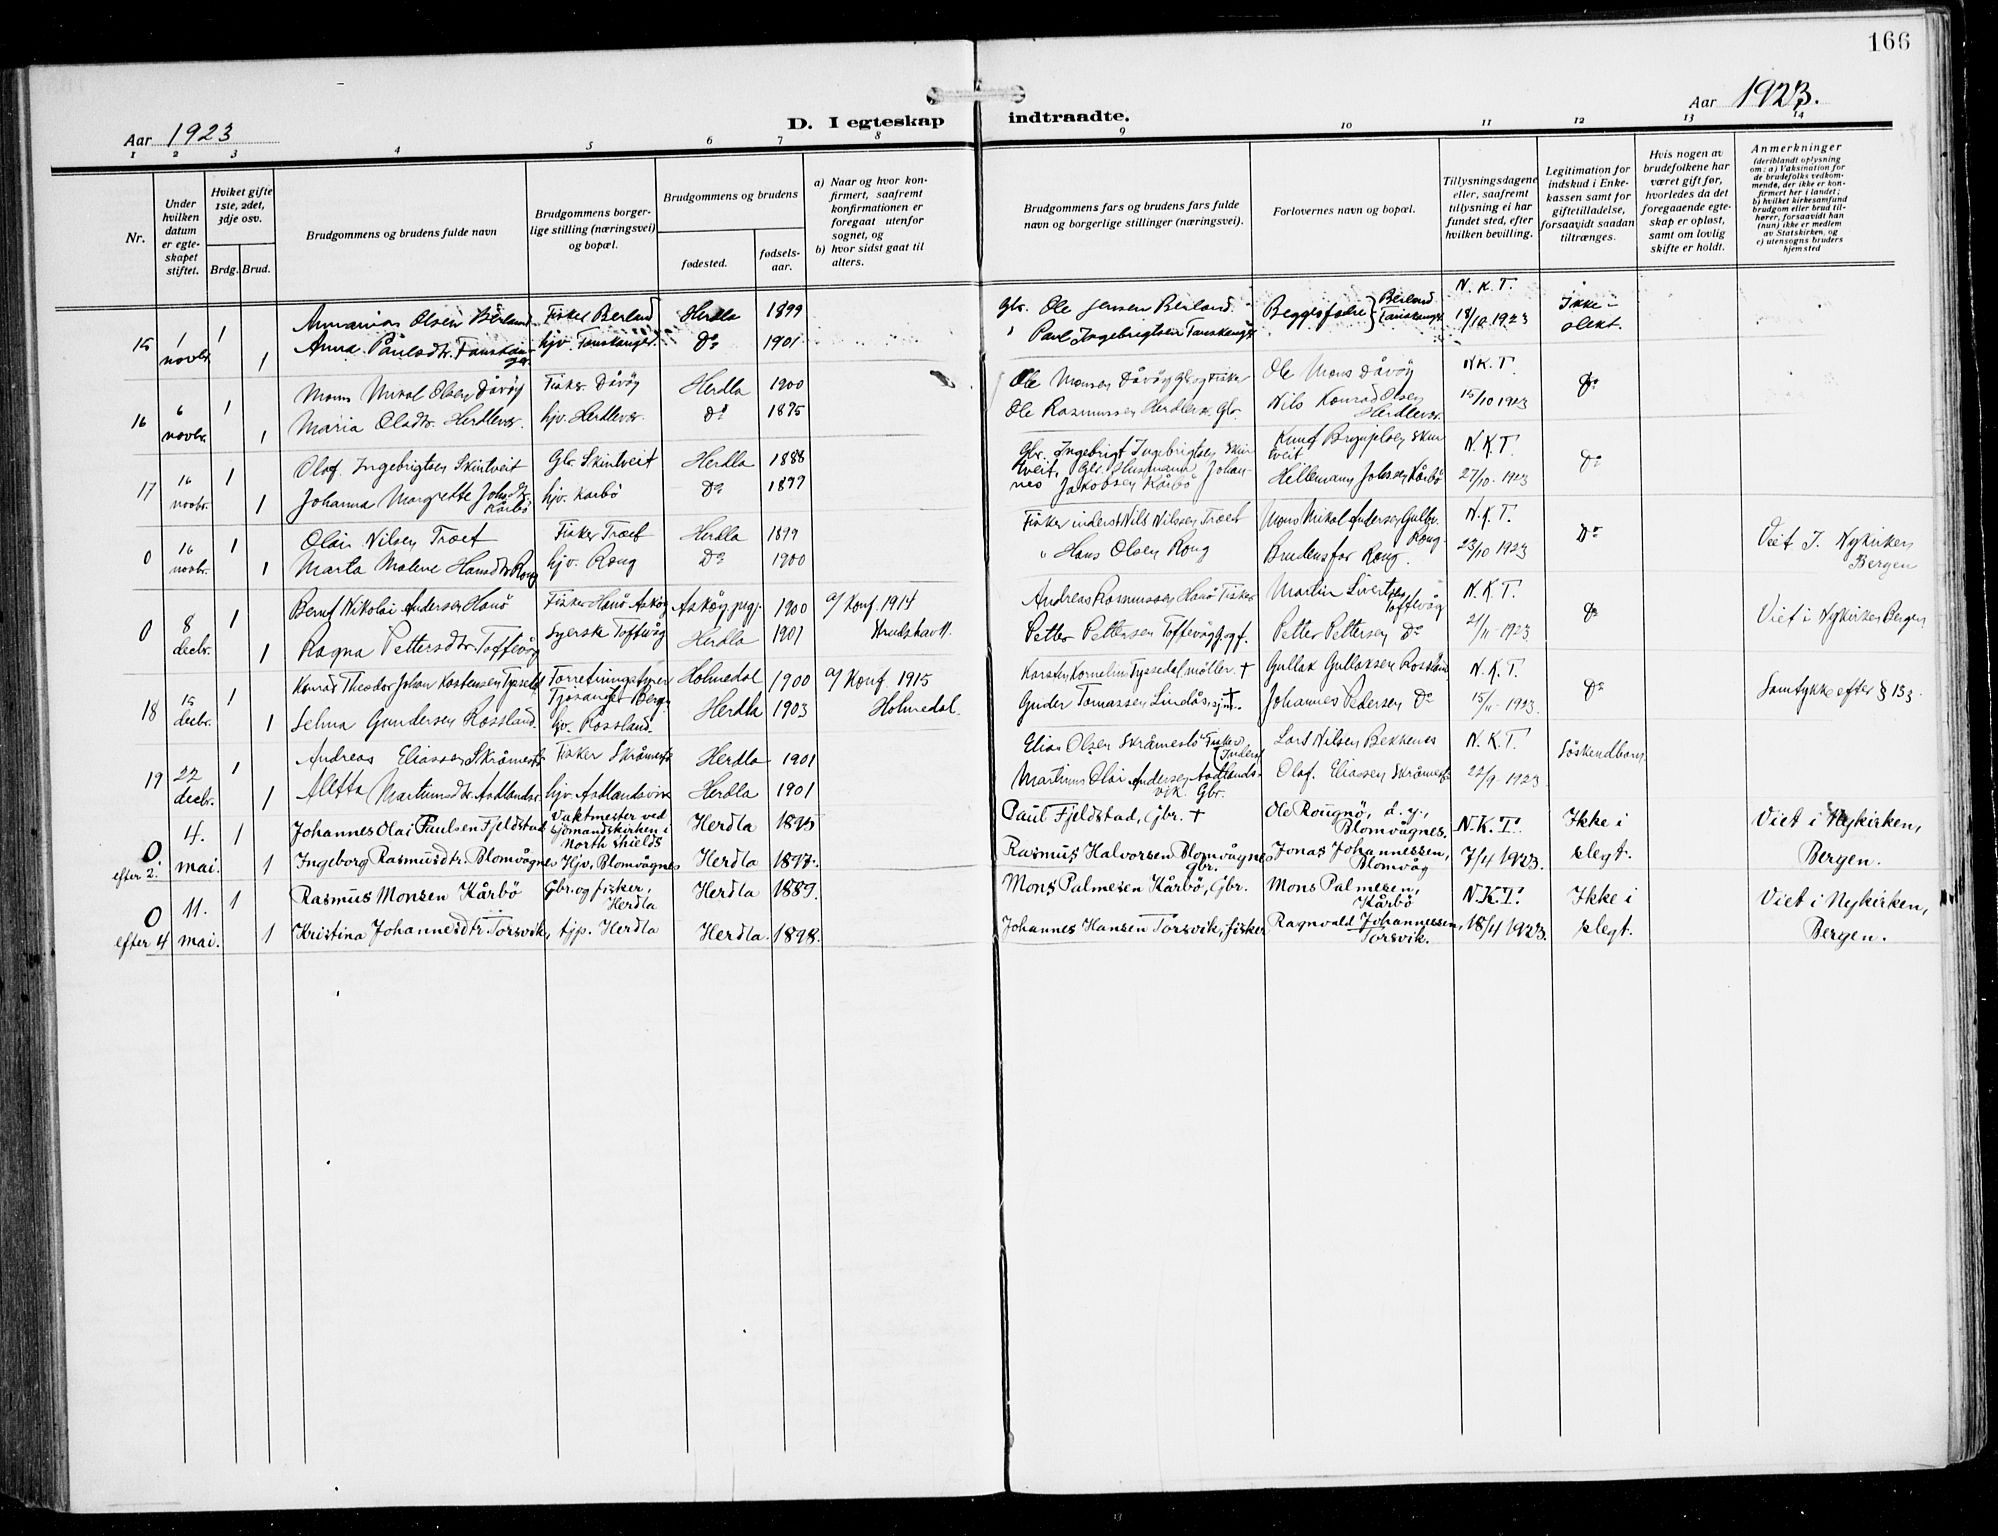 166
Aar 1923
D. I egteskap indtraadte.
Aar 1923.
1 2 3 4 5 6 7 8 9 10 11 12 13 14
Nr.
Under hvilken datum er egteskapet stiftet.
Hviket gifte 1ste, 2det, 3dje osv.
Brdg. Brud.
Brudgommens og brudens fulde navn
Brudgommens borgerlige stilling (næringsvei) og bopæl.
Brudgommens og brudens
fødested.
fødselsaar.
a) Naar og hvor konfirmert, saafremt konfirmationen er foregaat utenfor sognet, og
b) hvor sidst gaat til alters.
Brudgommens fars og brudens fars fulde navn og borgerlige stillinger (næringsvei).
Forlovernes navn og bopæl.
Tillysningsdagene eller, saafremt tillysning ei har fundet sted, efter hvilken bevilling.
Legitimation for indskud i Enkekassen samt for giftetilladelse, forsaavidt saadan tiltrænges.
Hvis nogen av brudefolkene har været gift før, hvorledes da det foregaaende egteskap er opløst, samt om lovlig skifte er holdt.
Anmerkninger
(deriblandt oplysning om: a) Vaksination for de brudefolks vedkommende, der ikke er konfirmert her i landet; b) hvilket kirkesamfund brudgom eller brud tilhører, forsaavidt han (hun) ikke er medlem av Statskirken, og c) utensogns bruders hjemsted
15 1 novbr. 1 Olsen Berland Fisker Berland Herdla 1899 Gbr. Ole Jensen Berland Begges fædre Berland N.K.T. Ikke
1 Anna Paulsdtr. hjv. Do 1901 " Paul Ingebrigtsen 18/10 1923 slekt.
16 6 novbr. 1 Mons Mikal Olsen Dåvöy Fisker Dåvöy Herdla 1900 Ole Monsen Dåvöy Gbr og Fisker Ole Mons Dåvöy N.K.T. Do
1 Maria Olsdtr. Herdlevær hjv. Herdlevær Do 1895 Ole Rasmussen Herdlevær Gbr. Nils Konrad Olsen Herdlevær 15/10 1923
17 16 novbr. 1 Olaf Ingebrigtsen Skintveit Gbr Skintveit Herdla 1888 Gbr. Ingebrigt Ingebrigtsen Skintveit, Knut Brynjelsen Skintveit N.K.T. Do
1 Johanna Margrette Johsdtr. Kårbö hjv. Karbö Do 1899 Gbr. Husmann Johannes Jakobsen Kårbö Hillemann Johsen Kårbö 27/10 1923
0 16 novbr. 1 Olai Nilsen Træt Fisker Træt Herdla 1899 Fisker inderst Nils Nilsen Træt Mons Mikal Andersen Rong N.K.T. Do Viet I Nykirken
1 Marta Malene Hansdtr Rong hjv. Rong Do 1900 " Hans Olsen Rong Brudens far Rong. 23/10 1923 Bergen
0 8 decbr. 1 Bernt Nikolai Andersen Hanö Fisker Hanö Askøy Askøy pgj. 1900 a/ Konf. 1914 Andreas Rasmussen Hanö Fisker Martin Sivertsen Toftevåg N.K.T. Do Viet i Nykirken Bergen
1 Ragna Pettersdtr. Toftevåg Syerske Toftvåg Herdla 1901 Petter Pettersen Toftevåg Petter Pettersen Do 21/11 1923
18 15 decbr. 1 Konrad Theodor Johan Karstensen Tyssedal Bergen Holmedal 1900 a/ Konf 1915 Karsten Kornelius Tyssedal möller + Gullak Gullaksen Rossland N.K.T. Do Samtykke efter § 133.
1 Selma Gundersen Rossland. hv. Rossland. Herdla 1903 Holmedal. Guder Tomassen Lindås + Johannes Pedersen Do 15/11 1923.
19 22 decbr. 1 Andreas Eliassen Skråmestö Fisker Skråmestö Herdla 1901 Elias Olsen Skråmestö Fisker, Inderst Lars Nilsen Bekkenes N.K.T. Söskendbarn
1 Aletta Martinusdtr. Ådlandsv. hjv. Ådlandsvik Herdla 1901 Martinus Olai Andersen Aadlandsvik. Gbr. Olaf Eliassen Skråmestö 22/9 1923
0 efter 2. 4. mai. 1 Johannes Olai Paulsen Fjeldstad Vaktmester ved sjömandskirken i North shields Herdla 1895 Paul Fjeldstad, Gbr. + Ole Rougnö, d.y., Blomvågnes. N.K.T. Ikke i Viet i Nykirken,
1 Ingeborg Rasmusdtr. Blomvågnes Hjv. Blomvågnes Herdla 1897. Rasmus Halvorsen Blomvågnes Gbr. Jonas Johannessen, Blomvåg 7/4 1923. slegt. Bergen.
0 efter 4 11. mai. 1 Rasmus Monsen Kårbö Gbr. og fisker, Herdla Herdla 1889. Mons Palmesen Kårbö, Gbr. Mons Palmesen, Kårbö N.K.T. Ikke i Viet i Nykirken,
1 Kristina Johannesdtr. Torsvik, tjp. Herdla Herdla. 1898. Johannes Hansen Torsvik, fisker Ragnvald Johannessen, Torsvik. 18/4 1923. slegt. Bergen.